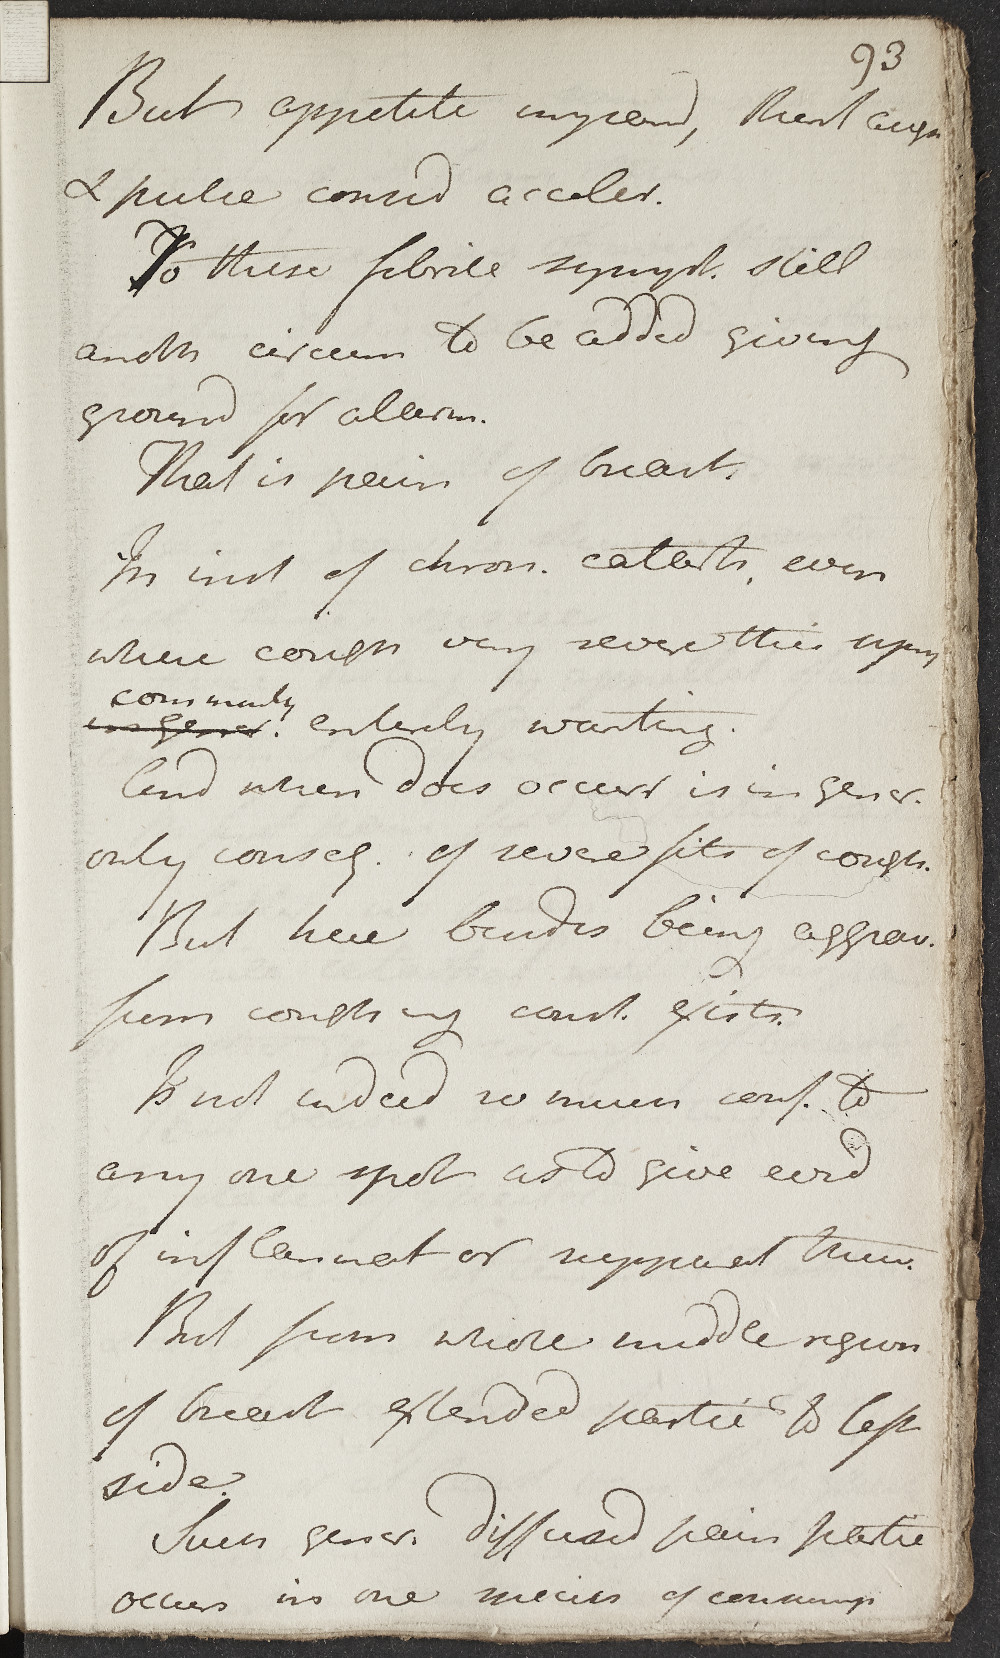 93
But appetite impaird, thirst augm
& pulse consid acceler.
To these febrile sympt. still
anoth circum to be added giving
ground for allarm.
That is pain of breast.
In inst of chron. catarrh, even
where cough very severe this sym
commonly
in gener. entirely wanting.
And when does occurr is in gener.
only conseq. of severe fits of cough.
But here besides being aggrav.
from coughing const. exists.
Is not indeed so much conf. to
any one spot as to give evid
of inflammat or suppurat there.
But from whole middle region
of breast extended partic to left
side.
Such gener. diffused pain partic
occurs in one species of consump